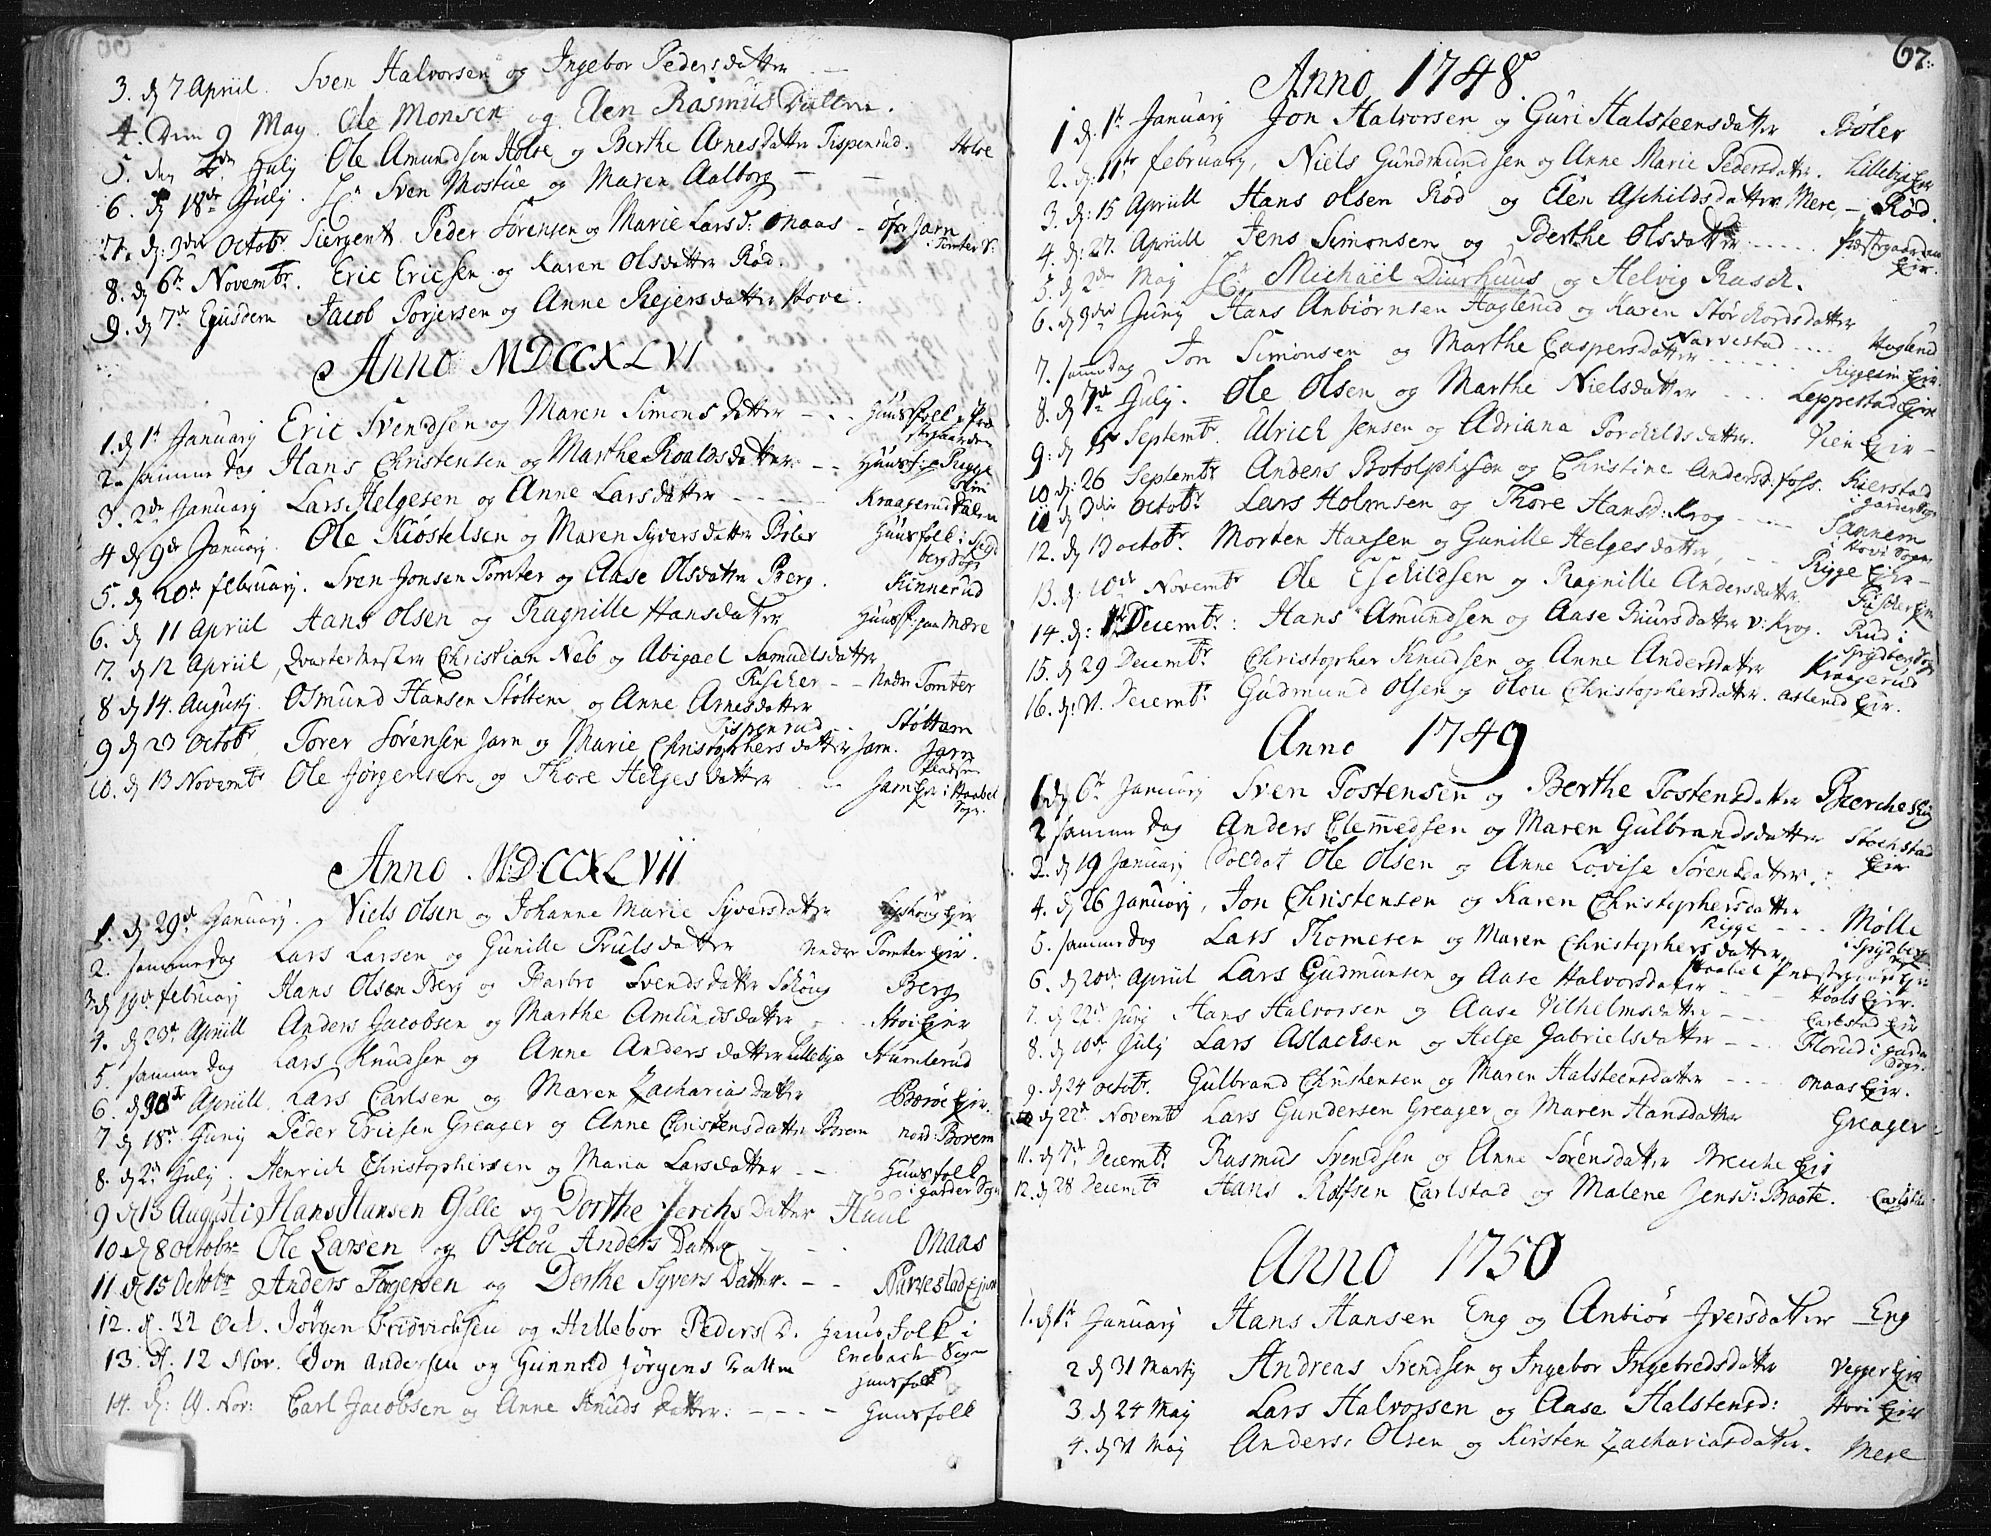 3. d 7 April. Sven Halvorsen og Ingebor Pedersdatter
4. Den 9 May. Ole Monsen og Elen Rasmus Datter.
5. den July Ole Amundsen Holse og Berthe Arnesdatter Tispenrud. Holse
6. d 18de July. Hr Sven Mostue og Maren Aalborg
d: 3die Octobr. Siergent Peder Sørensen og Marie Larsd: Maas - øfr Jarn
i Tomter
8. d 6te Novembr. Eric Ericsen og Karen Olsdatter Rød.
9. d 7de Ejusdem Jacob Torjersen og Anne Rejersdatter Hove.
Anno MDCCXLVI
1. d 1te January Eric Svendsen og Maren Simonsdatter - - Huusfolk
2. samme Dag Hans Christensen og Marthe Roaldsdatter - - Huusf: Rigge
Eiri
3. 2de January Lars Helgesen og Anne Larsdatter - - Kraagerud
4 d 9de January. Ole Kiøstelsen og Maren Syversdatter Bøler Huusfolk i Spyd
berg Sogn
5. d 20de february. Sven Jonsen Tomter og Aase Olsdatter Berg. Kinnerud
6. d 11 April Hans Olsen og Ragnille Hansdatter Huusf: paa Mære
7. d 12 April, Qvartermester Christian Neb og Abigael Samuelsdatter
Fischer - - Nedr Tomter
8 d 14. Augusty Osmund Hansen Støttem og Anne Arnesdatter
Tispenrud - Støttam
9 d 23 Octobr, Torer Sørensen Jarn og Marie Christophersdatter Jarn. Jarn
Pladsen
10. d 13 Novembr Ole Jørgensen og Thore Helgesdatter - - Jarn Eir i Haabel
Sogn.
Anno MDCCXLVII
1. d 29de January. Niels Olsen og Johanne Marie Syversdatter Eir
2. samme Dag Lars Larsen og Gunille Trulsdatter Nedr Tomter Eir.
3 d 19de february Hans Olsen Berg og Barbro Svendsdatter Skoug Berg
4. d 23de Aprill Anders Jacobsen og Marthe Amundsdatter - Hovi Eir
5. samme Dag Lars Knudsen og Anne Andersdatter Lillebye Humlerud
6. d 30te Aprill. Lars Carlsen og Maren Zachariasdatter Barøe Eir.
7 d 18de Juny Peder Ericsen Greager og Anne Christensdatter Borem nord: Borem
8. d 2de July. Henrich Christophersen og Maria Larsdatter - - Huusfolk
i garder Sogn
9 d 13 Augusti Hans Hansen Gille og Dorthe Jerichsdatter Huul
10 d 8 Octobr Ole Larsen og Olou Anders Datter - - Maas
11 d 15 Octobr Anders Torgersen og Dorthe Syvers Datter. - - Narvestad Ejer
12. d. 22 Oct. Jørgen Fridrichsen og Hillebor Peders D. Huusfolk i
Enebach Sogn
13. d. 12 Nov. Jon Andersen og Gunnild Jørgens Datter
Huusfolk
14. d: 19. Nov: Carl Jacobsen og Anne Knuds Datter: - - - - Huusfolk
67.
Anno 1748.
1 d: 1te January Jon Halvorsen og Guri Halsteensdatter Bøler
2. d: 11te february, Niels Gundmundsen og Anne Marie Pedersdatter. Lillebye Eir
3. d: 15 Aprill Hans Olsen Rød og Elen Aschildsdatter Mere - Rød.
4. d: 27. Aprill Jens Simonsen og Berthe Olsdatter - - - - Præstegaarden
Eir.
5. d 2den May Hr. Michaël Diurhuus og Helvig Rasch.
6. d 3die Juny Hans Anbiørnsen Haglund og Karen Størchordsdatter
Narvestad - - - Haglund
7. samme dag Jon Simonsen og Marthe Caspersdatter - - - Riggesin Eir
8. d 7de July. Ole Olsen og Marthe Nielsdatter - - - Leppestad Eir
9. d 15 Septembr. Ulrich Jensen og Adriana Torchildsdatter. Vien Eir
10. d: 26 Septembr Anders Botolphsen og Christine Andersd. Foss. Kierstad
i garder Sogn
11 d 3die Octobr Lars Holmsen og Thore Hansd: Krog - - - Sannem
i Hovi Sogn
12. d 13 octobr. Morten Hansen og Gunille Helgesdatter, - - Rigge Eir
13. d: 10de Novembr Ole Eschildsen og Ragnille Andersdatter. Fischer Eir
14. d: 1te Decembr: Hans Amundsen og Aase Biursdatter v: Krog. Rud i
Spydberg Sogn
15. d 29 Decembr Christopher Knudsen og Anne Andersdatter Kraagerud
16. d: 31. Decembr Gudmund Olsen og Olou Christophersdatter. Aslerud Eir.
Anno 1749
1 d 6te January Sven Tostensen og Berthe Tostensdatter Bierche Eir
2 samme dag Anders Clemmedsen og Maren Gulbrandsdatter Stochstad
Eir
3. d 19 January Soldat Ole Olsen og Anne Lovise Sørensdatter.
4. d 26 January, Jon Christensen og Karen Christophersdatter
Rigge - - - Mølle
i Spydberg
5. samme dag Lars Thomesen og Maren Christophersdatter
6. d 20de Aprill Lars Gudmunsen og Aase Halvorsdatter Præstegaards
7. d 22de Juny Hans Halvorsen og Aase Vilhelmsdatter - - - Hools Eir.
8. d 10de July Lars Aslachsen og Helge Gabrielsdatter - - Carlstad Eir
Florud i garder
Sogn.
9. d 24 octobr. Gulbrand Christensen og Maren Halsteensdatter - - - Maas Eir.
10 d 22de Novembr Lars Gundersen Greager og Maren Hansdatter Greager
11. d 7de Decembr. Rasmus Svendsen og Anne Sørensdatter Breche Eir
12. d 28 Decembr Hans Rolfsen Carlstad og Malene Jensd: Baate. Carlstad
Anno 1750
1. d 1te January Hans Hansen Eng og Anbiør Iversdatter Eng
2 d 31 Marty Andreas Svendsen og Ingebor Ingebredsdatter Vegger Eir
3. d 24 May Lars Halvorsen og Aase Halstensd: Hovi Eir
4. d 31 May Anders Olsen og Kirsten Zachariasdatter. Mere